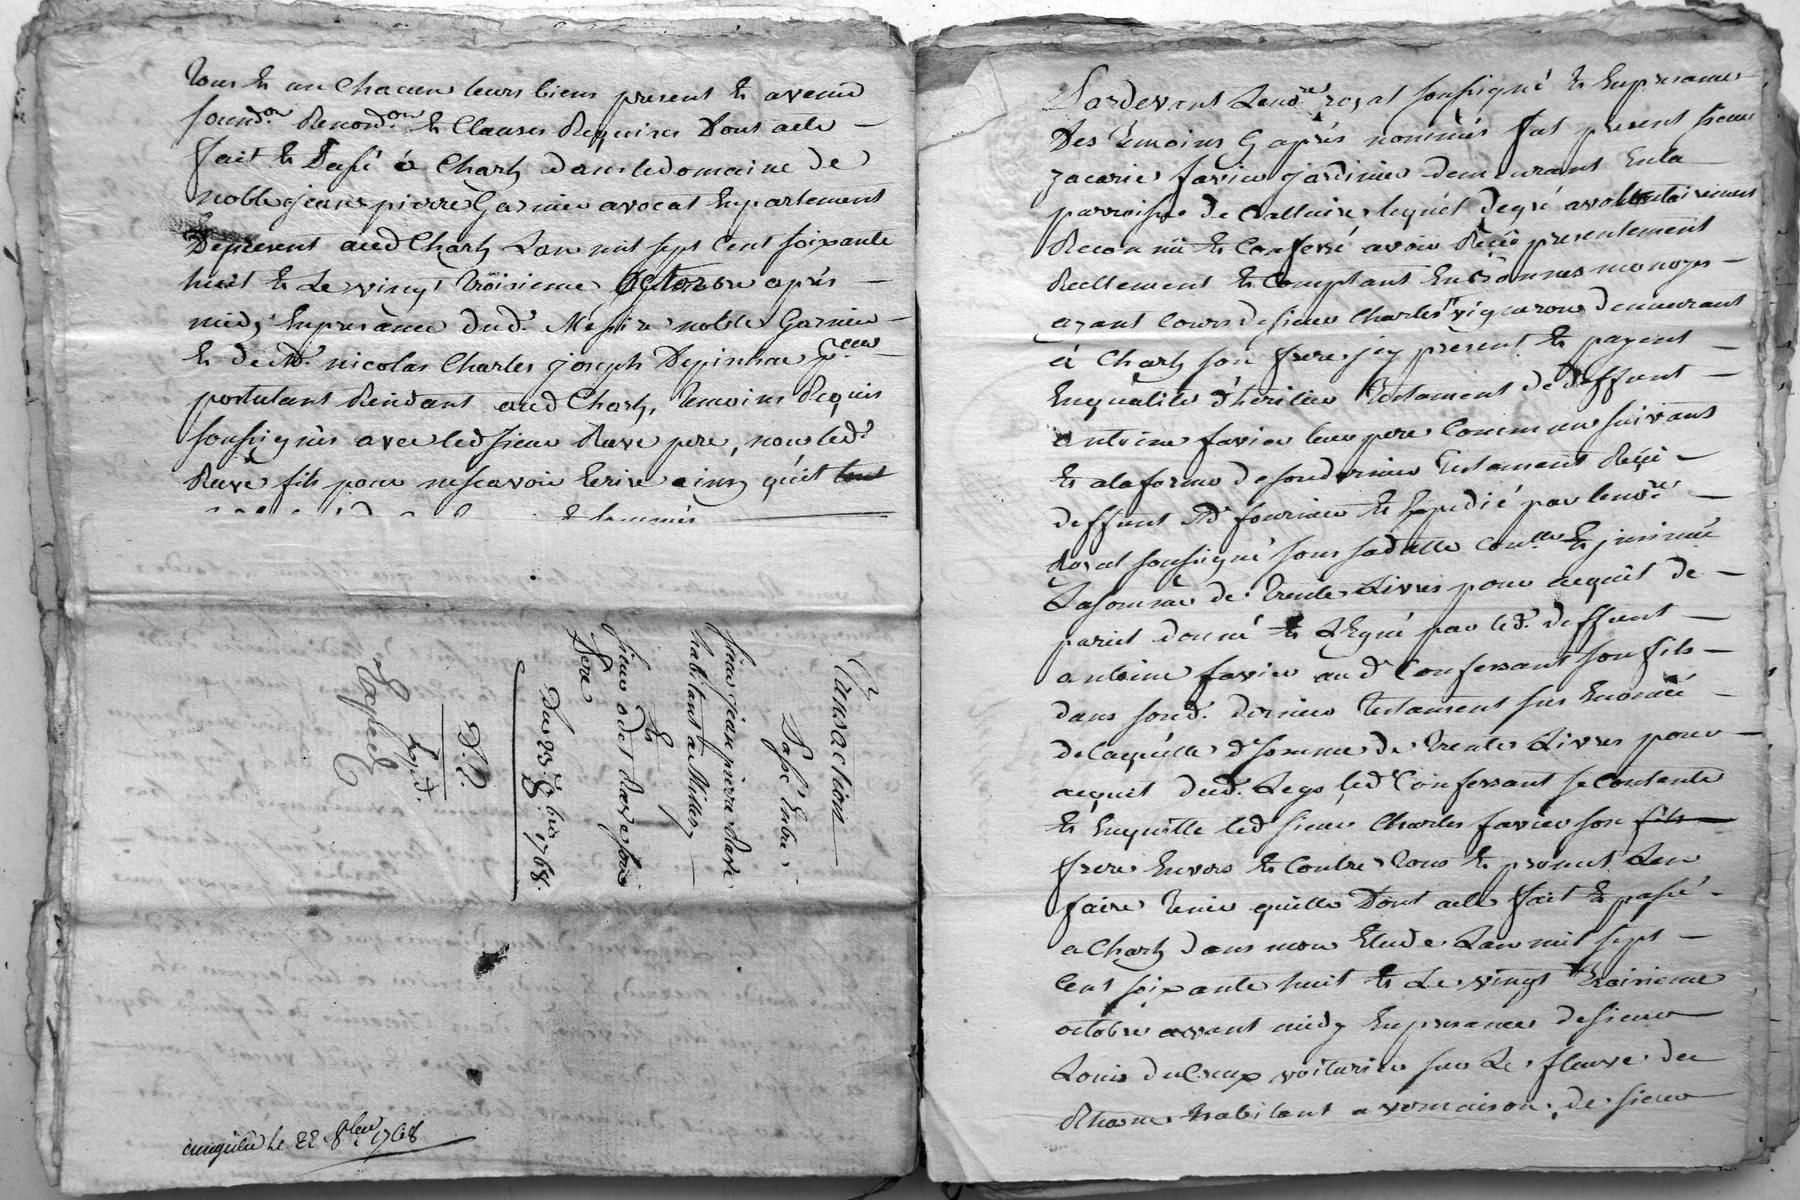 tous et un chacun leurs biens present et avenir
soumdon Renondon et Clauses Requises Dont acte
fait et Passé à Charly dans le domaine de
noble jean pierre Garnier avocat En parlement
De present aud Charly L'an mil sept Cent soixante
huit et Le vingt troisieme Octobre après
midy En presance dud. Messire noble Garnier
et de Me. nicolas Charles joseph Depinhac
postulant Residant aud Charly, temoins Requis
soussignés avec led sieur Rave pere, non led.
Rave fils pour ne scavoir Ecrire ainsy qu'il tout
et sommés
Transaction
Passé Entre
sieur jean pierre Rave
habitant à Millery
Et
sieur odet Rave son
Pere
Du 23e. 8bre 1768.
Expd.
Controllé le 22 8bre 1768
Pardevant Le nore. royal soussigné et En presance
Des temoins Cy après nommés fut present sieur
zacarie favier jardinier demeurant En la
parroisse de Calluire, lequel de gré a volontairement
Reconnû et Confessé avoir Reçû presentement
Reellement et Comptant En bonnes monoyes
ayant Cours de sieur Charles vigneron demeurant
à Charly son frere jcy present et payant
En qualité d'heritier Testament de deffunt
antoine favier leur pere Commun suivant
et a la forme de son dernier Testament Reçû
deffunt Me fournier et Expedié par le nore.
Royal soussigné sous sa datte Conlle et jnsinué
La somme de trente Livres pour acquit de
pareil donné et Légué par led. deffunt
antoine favier aud Confessant son fils
dans sond. dernier testament sus Enoncé
de laquelle d somme de trente Livres pour
acquit dud. Legs led Confessant se Contente
et En quitte led sieur Charles favier son fils
frere Envers et Contre tous et promet L'en
faire tenir quitte Dont acte fait et passé
a Charly dans mon Etude L'an mil sept
Cent soixante huit et Le vingt troisieme
octobre avant midy En presance de sieur
Louis duCreux voiturier sur Le fleuve du
Rhosne habitant a vernaison, de sieur